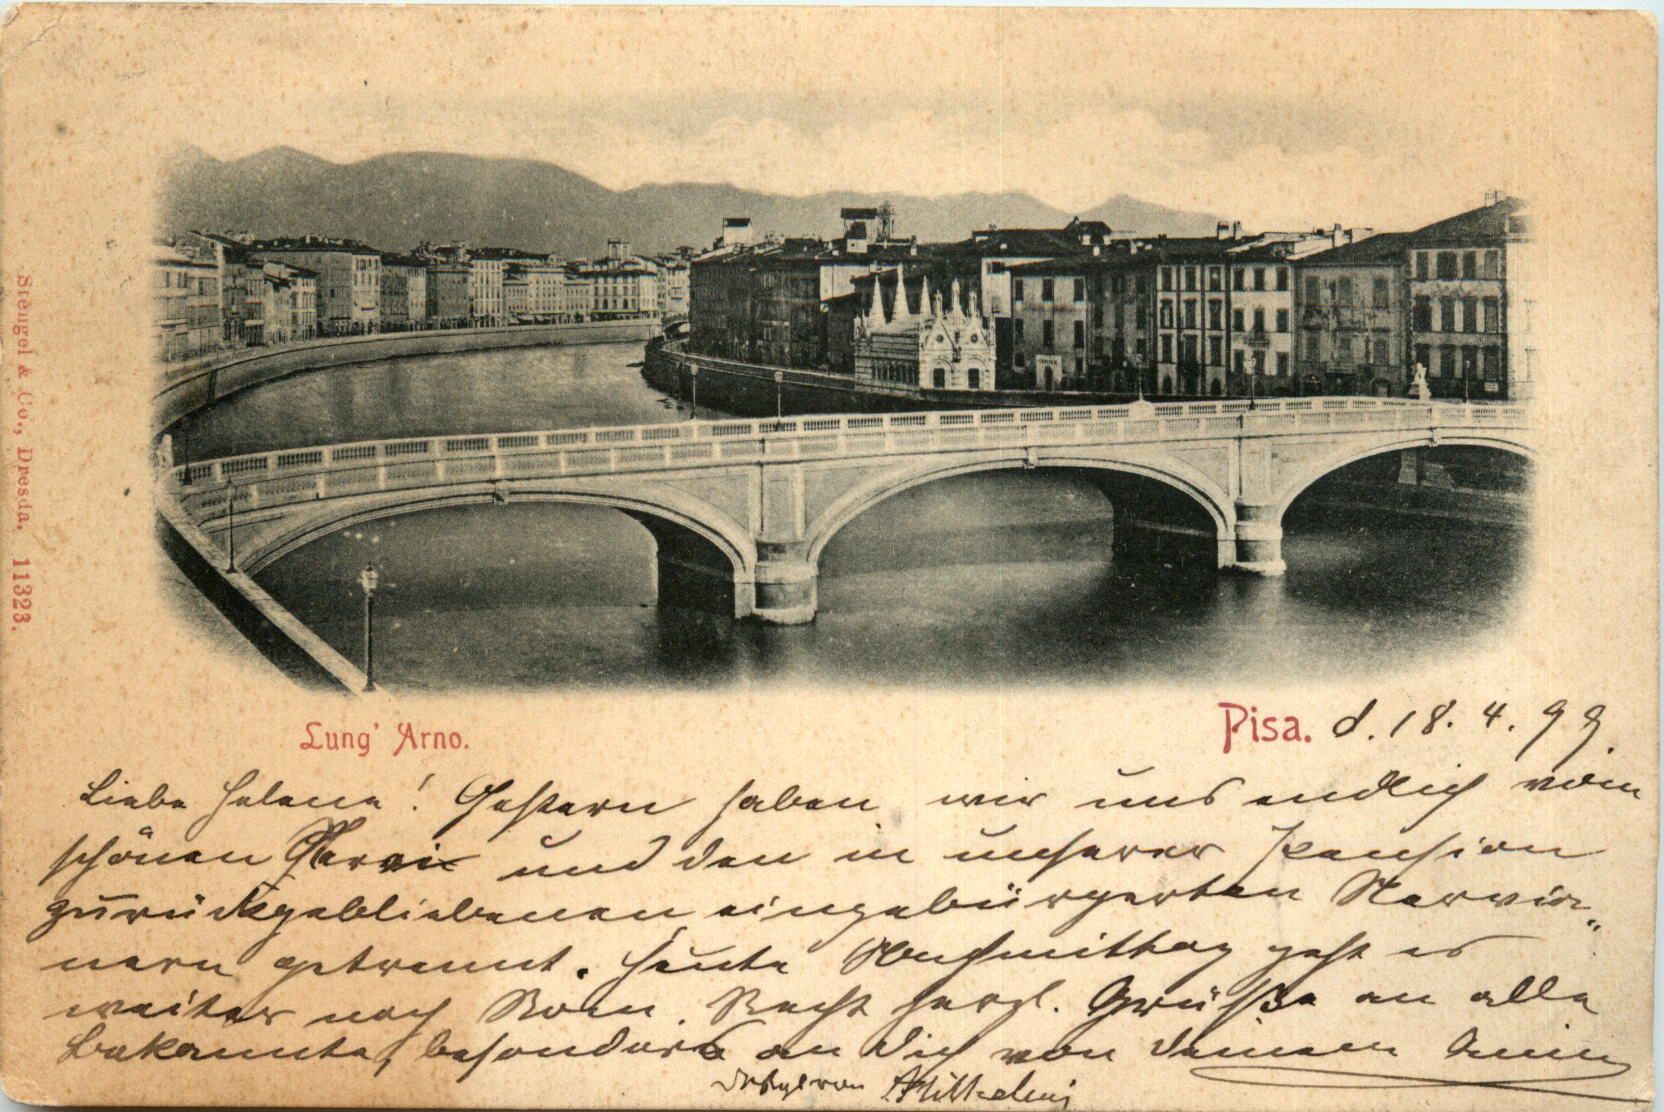 Stengel & Co., Dresda. 11323.
Lung' Arno.
Pisa. d. 18. 4. 99.
Liebe Helene! Gestern haben wir uns endlich vom
schönen Nervi und den in unserer Pension
zurückgebliebenen eingebürgerten Nervia„
nern getrennt. Heute Nachmittag geht es
weiter nach Rom. Recht herzl. Grüße an alle
Bekannte, besonders an Dich von Deinem
desgl von